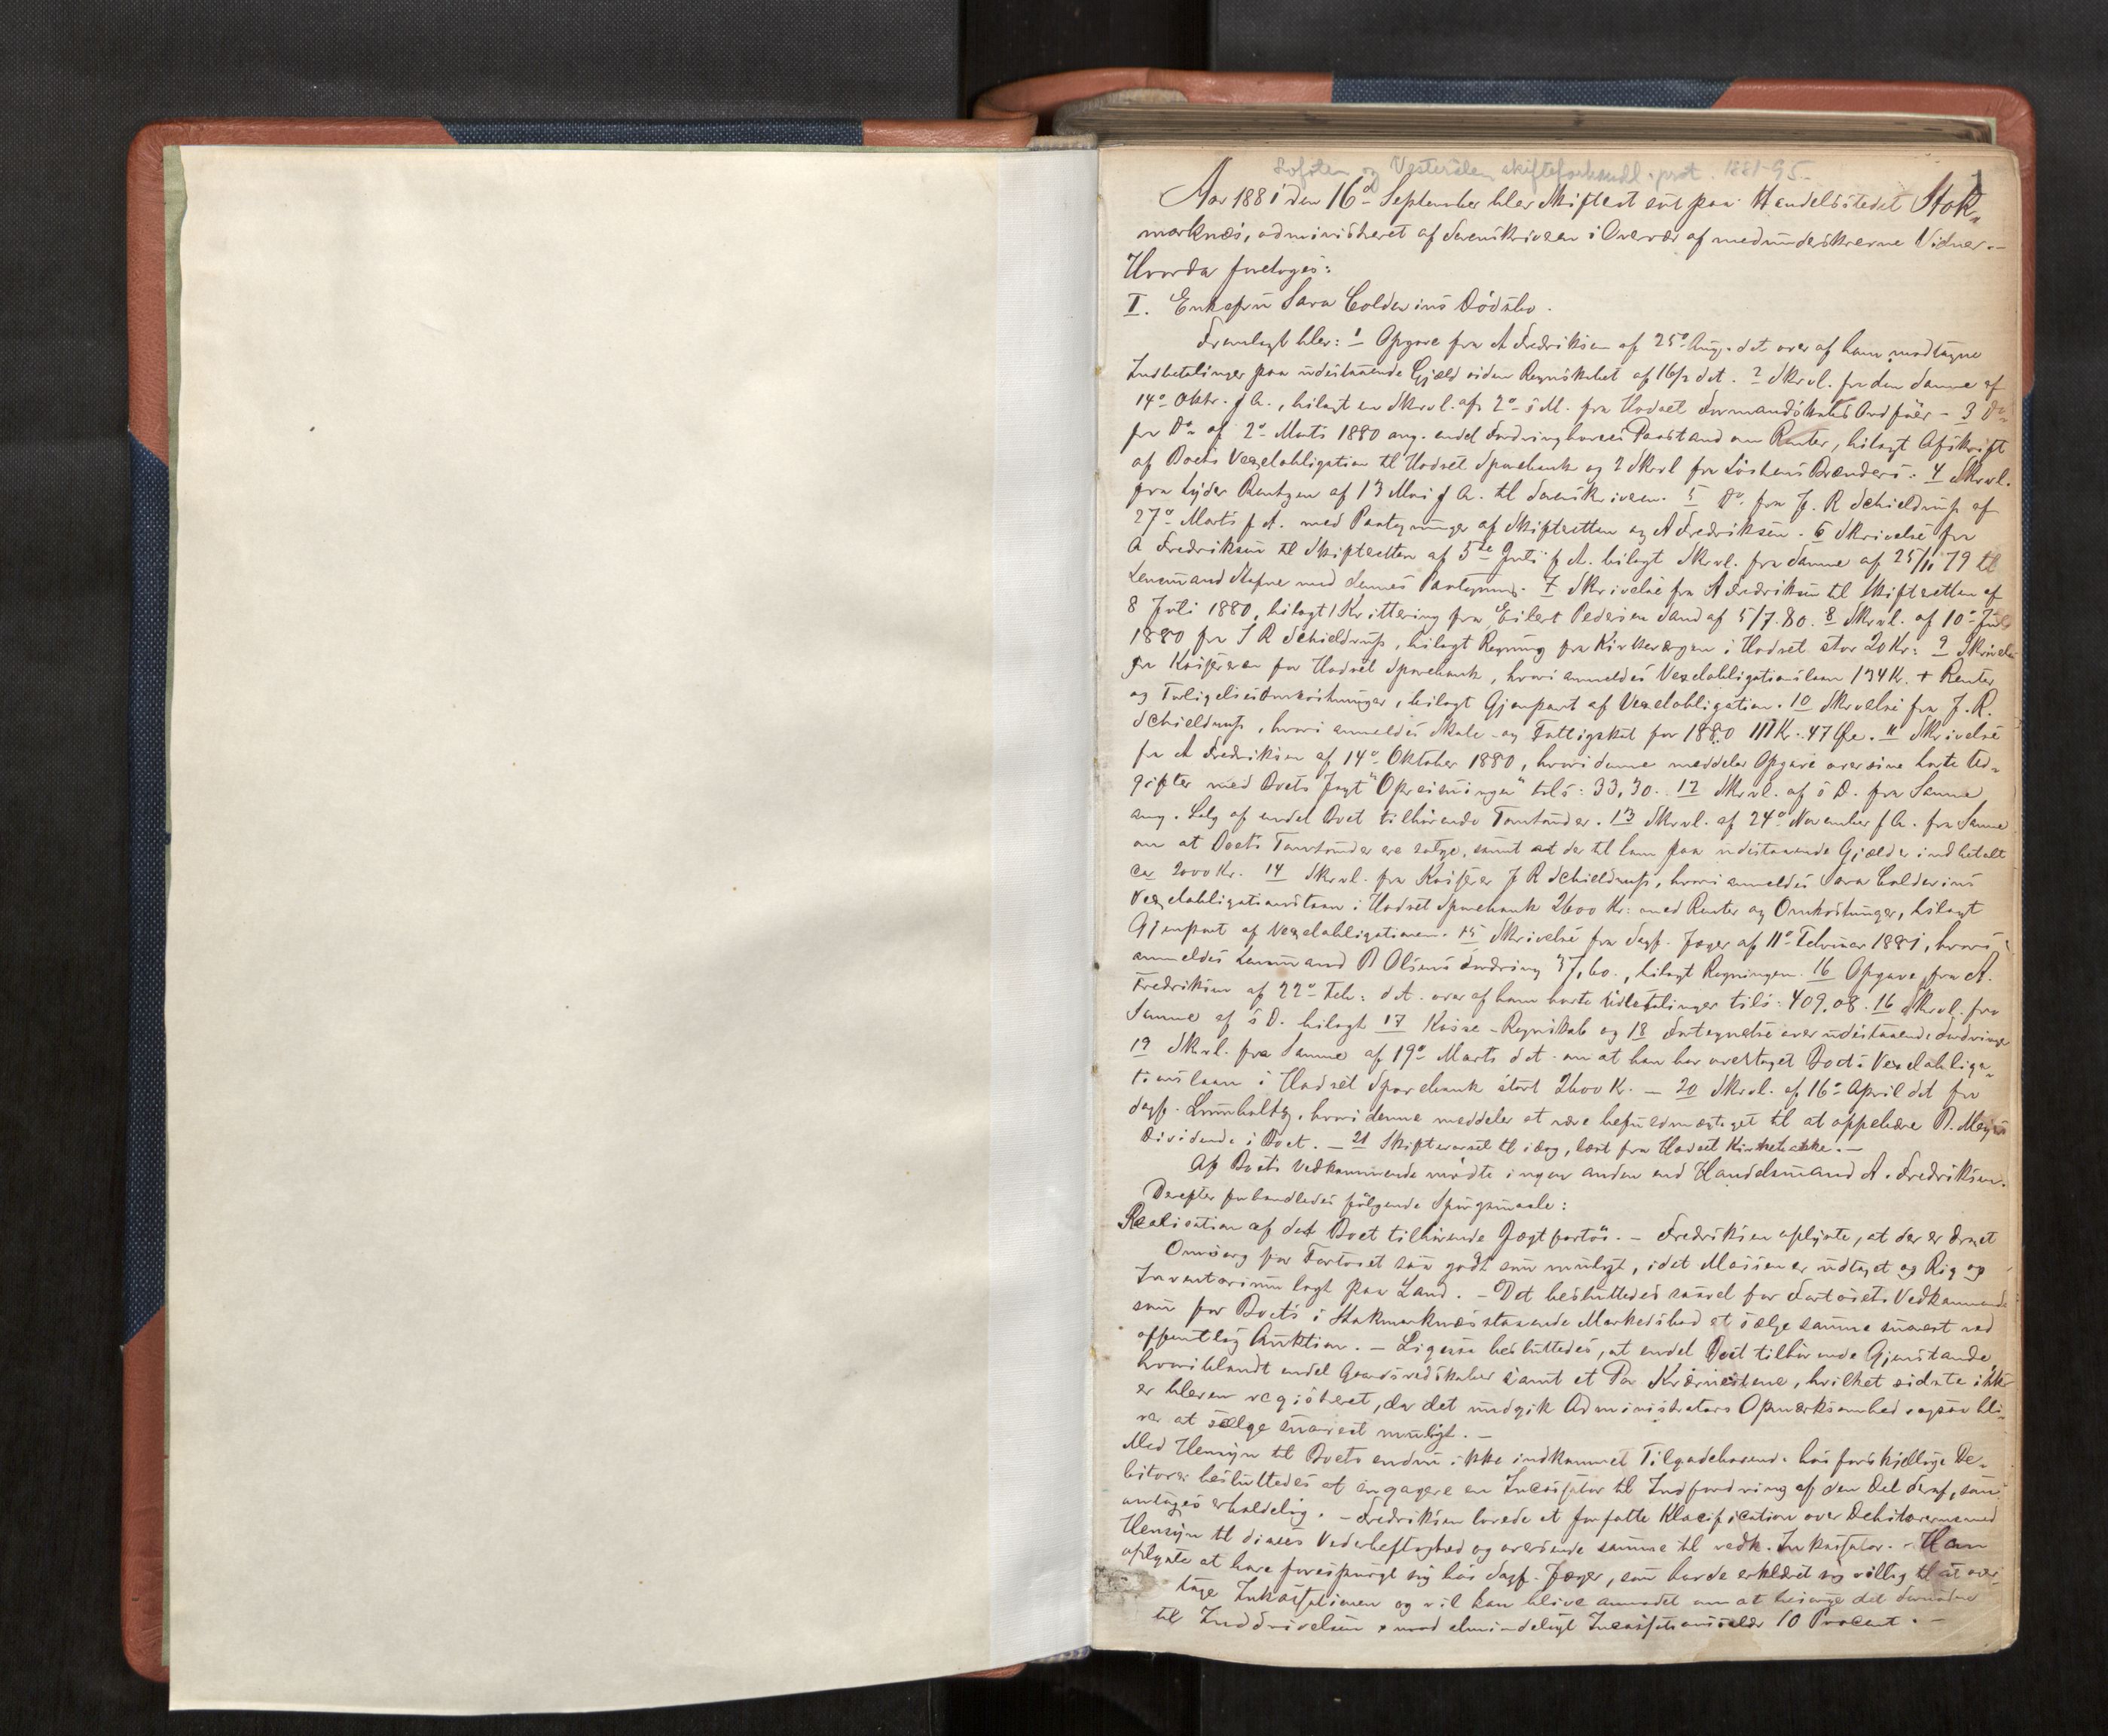 Lofoten og Vesterålen skifteforhandl. prot. 1881-95.
1
Aar 1881 den 16d September blev Skifteret sat paa Handelsstedet Stok-
marknæs, administreret af Sorenskriveren i Overvær af medunderskrevne Vidner. -
Hvorda foretoges:
I. Enkefru Sara Coldevins Dødsbo.
Fremlagt blev: 1 Opgave fra A Fredriksen af 25d Aug. d A over af ham modtagne
Indbetalinger paa udestaaende Gjæld siden Regnskabet af 16/2 d A. 2 Skrvl. fra den Samme af
14d Oktr. f A., bilagt en Skrvl. af 2d s M. fra Hadsel Formandskabs Ordfører - 3 Do
fra Do af 2d Marts 1880 ang. endel Fordringhaveres Paastand om Renter, bilagt Afskrift
af Boets Vexelobligation til Hadsel Sparebank og 2 Skrvl fra Løshens Brænderi. 4 Skrvl.
fra Lyder Rentzen af 13 Mai f A. til Sorenskriveren. 5 Do. fra J. R Schieldrup af
27d Marts f A. med Paategninger af Skifteretten og A Fredriksen. 6 Skrivelse fra
A Fredriksen til Skifteretten af 5te Juli f A. bilagt Skrvl. fra Samme af 25/11 79 til
Lensmand med dennes Paategning. 7 Skrivelse fra A Fredriksen til Skifteretten af
8 Juli 1880, bilagt 1 Kvittering fra Eilert Pedersen Sand af 5/7.80. 8 Skrvl. af 10d Juli
1880 fra J R Schieldrup, bilagt Regning fra Kirkeværgen i Hadsel stor 20 Kr: 9 Skrivelse
fra Kasserer for Hadsel Sparebank, hvori anmeldes Vexelobligationslaan 134 Kr. + Renter
og Forligelsesomkostninger, bilagt Gjenpart af Vexelobligation. 10 Skrvelse fra J. R.
Schieldrup, hvori anmeldes Skole- og Fattigskat for 1880 111 Kr. 47 Øre. 11 Skrivelse
fra A Fredriksen af 14d Oktober 1880, hvori denne meddeler Opgave over sine havte Ud-
gifter med Boets Jagt "Opreisningen" tils: 33,30. 12 Skrvl. af s D. fra Samme
ang. Salg af endel Boet tilhørende Tomtønder. 13 Skrvl. af 24d November f A. fra Samme
om at Boets Tomtønder ere solgte, samt at der til ham paa udestaaende Gjæld er indbetalt
ca 2000 Kr. 14 Skrvl. fra Kasserer J R Schieldrup, hvori anmeldes Sara Coldevins
Vexelobligationslaan i Hadsel Sparebank 2600 Kr: med Renter og Omkostninger, bilagt
Gjenpart af Vexelobligationen. 15 Skrivelse fra Sagf. Jæger af 11d Februar 1881, hvori
anmeldes Lensmand B Olsens Fordring 37,60., bilagt Regningen. 16 Opgave fra A.
Fredriksen af 22d Feb: d A. over af ham havte Udbetalinger tils: 409.08. 16 Skrvl. fra
Samme af s D. bilagt 17 Kasse-Regnskab og 18 Fortegnelse over udestaaende Fordringer
19 Skrvl. fra Samme af 19d Marts d A. om at han har overtaget Boets Vexelobliga-
tionslaan i Hadsel Sparebank stort 2600 Kr. - 20 Skrvl. af 16d April d A fra
Sagf. Lumholtz, hvori denne meddeler at være befuldmægtiget til at oppebære
Dividende i Boet. - 21 Skiftevarsel til idag, læst fra Hadsel Kirkebakke. -
Af Boets Vedkommende mødte ingen anden end Handelsmand A. Fredriksen.
Derefter forhandledes følgende Spørgsmaale:
Realisation af det Boet tilhørende Jagtfartøi. - Fredriksen oplyste, at der er draget
Omsorg for Fartøiet saa godt som muligt, idet Masten er udtaget og Rig og
Inventarium lagt paa Land. - Det besluttedes saavel for Fartøiets Vedkommende
som for Boets i Stokmarknæs staaende Markedsbod at sælge samme snarest ved
offentlig Auktion. - Ligesaa besluttedes, at endel Boet tilhørende Gjenstande,
hvoriblandt endel Gaardsredskaber samt et Par Kværnstene, hvilket sidste ikke
er bleven registreret, da det undgik Administrators Opmærksomhed ogsaa bli-
ver at sælge snarest muligt. -
Med Hensyn til Boets endnu ikke indkomne Tilgodehavende hos forskjellige De-
bitorer besluttedes at engagere en Incassator til Indfordring af den Del deraf, som
antages erholdelig. - Fredriksen lovede at forfatte Klasification over Debitorerne med
Hensyn til disses Vederheftighed og oversende samme til vedk. Inkassator. - Han
oplyste at have forespurgt sig hos Sagf. Jæger, som havde erklæret sig villig til at over-
tage Inkassationen og vil han blive anmodet om at besørge det fornødne
til Inddrivelsen mod almindeligt Incassationssalær 10 Procent. -